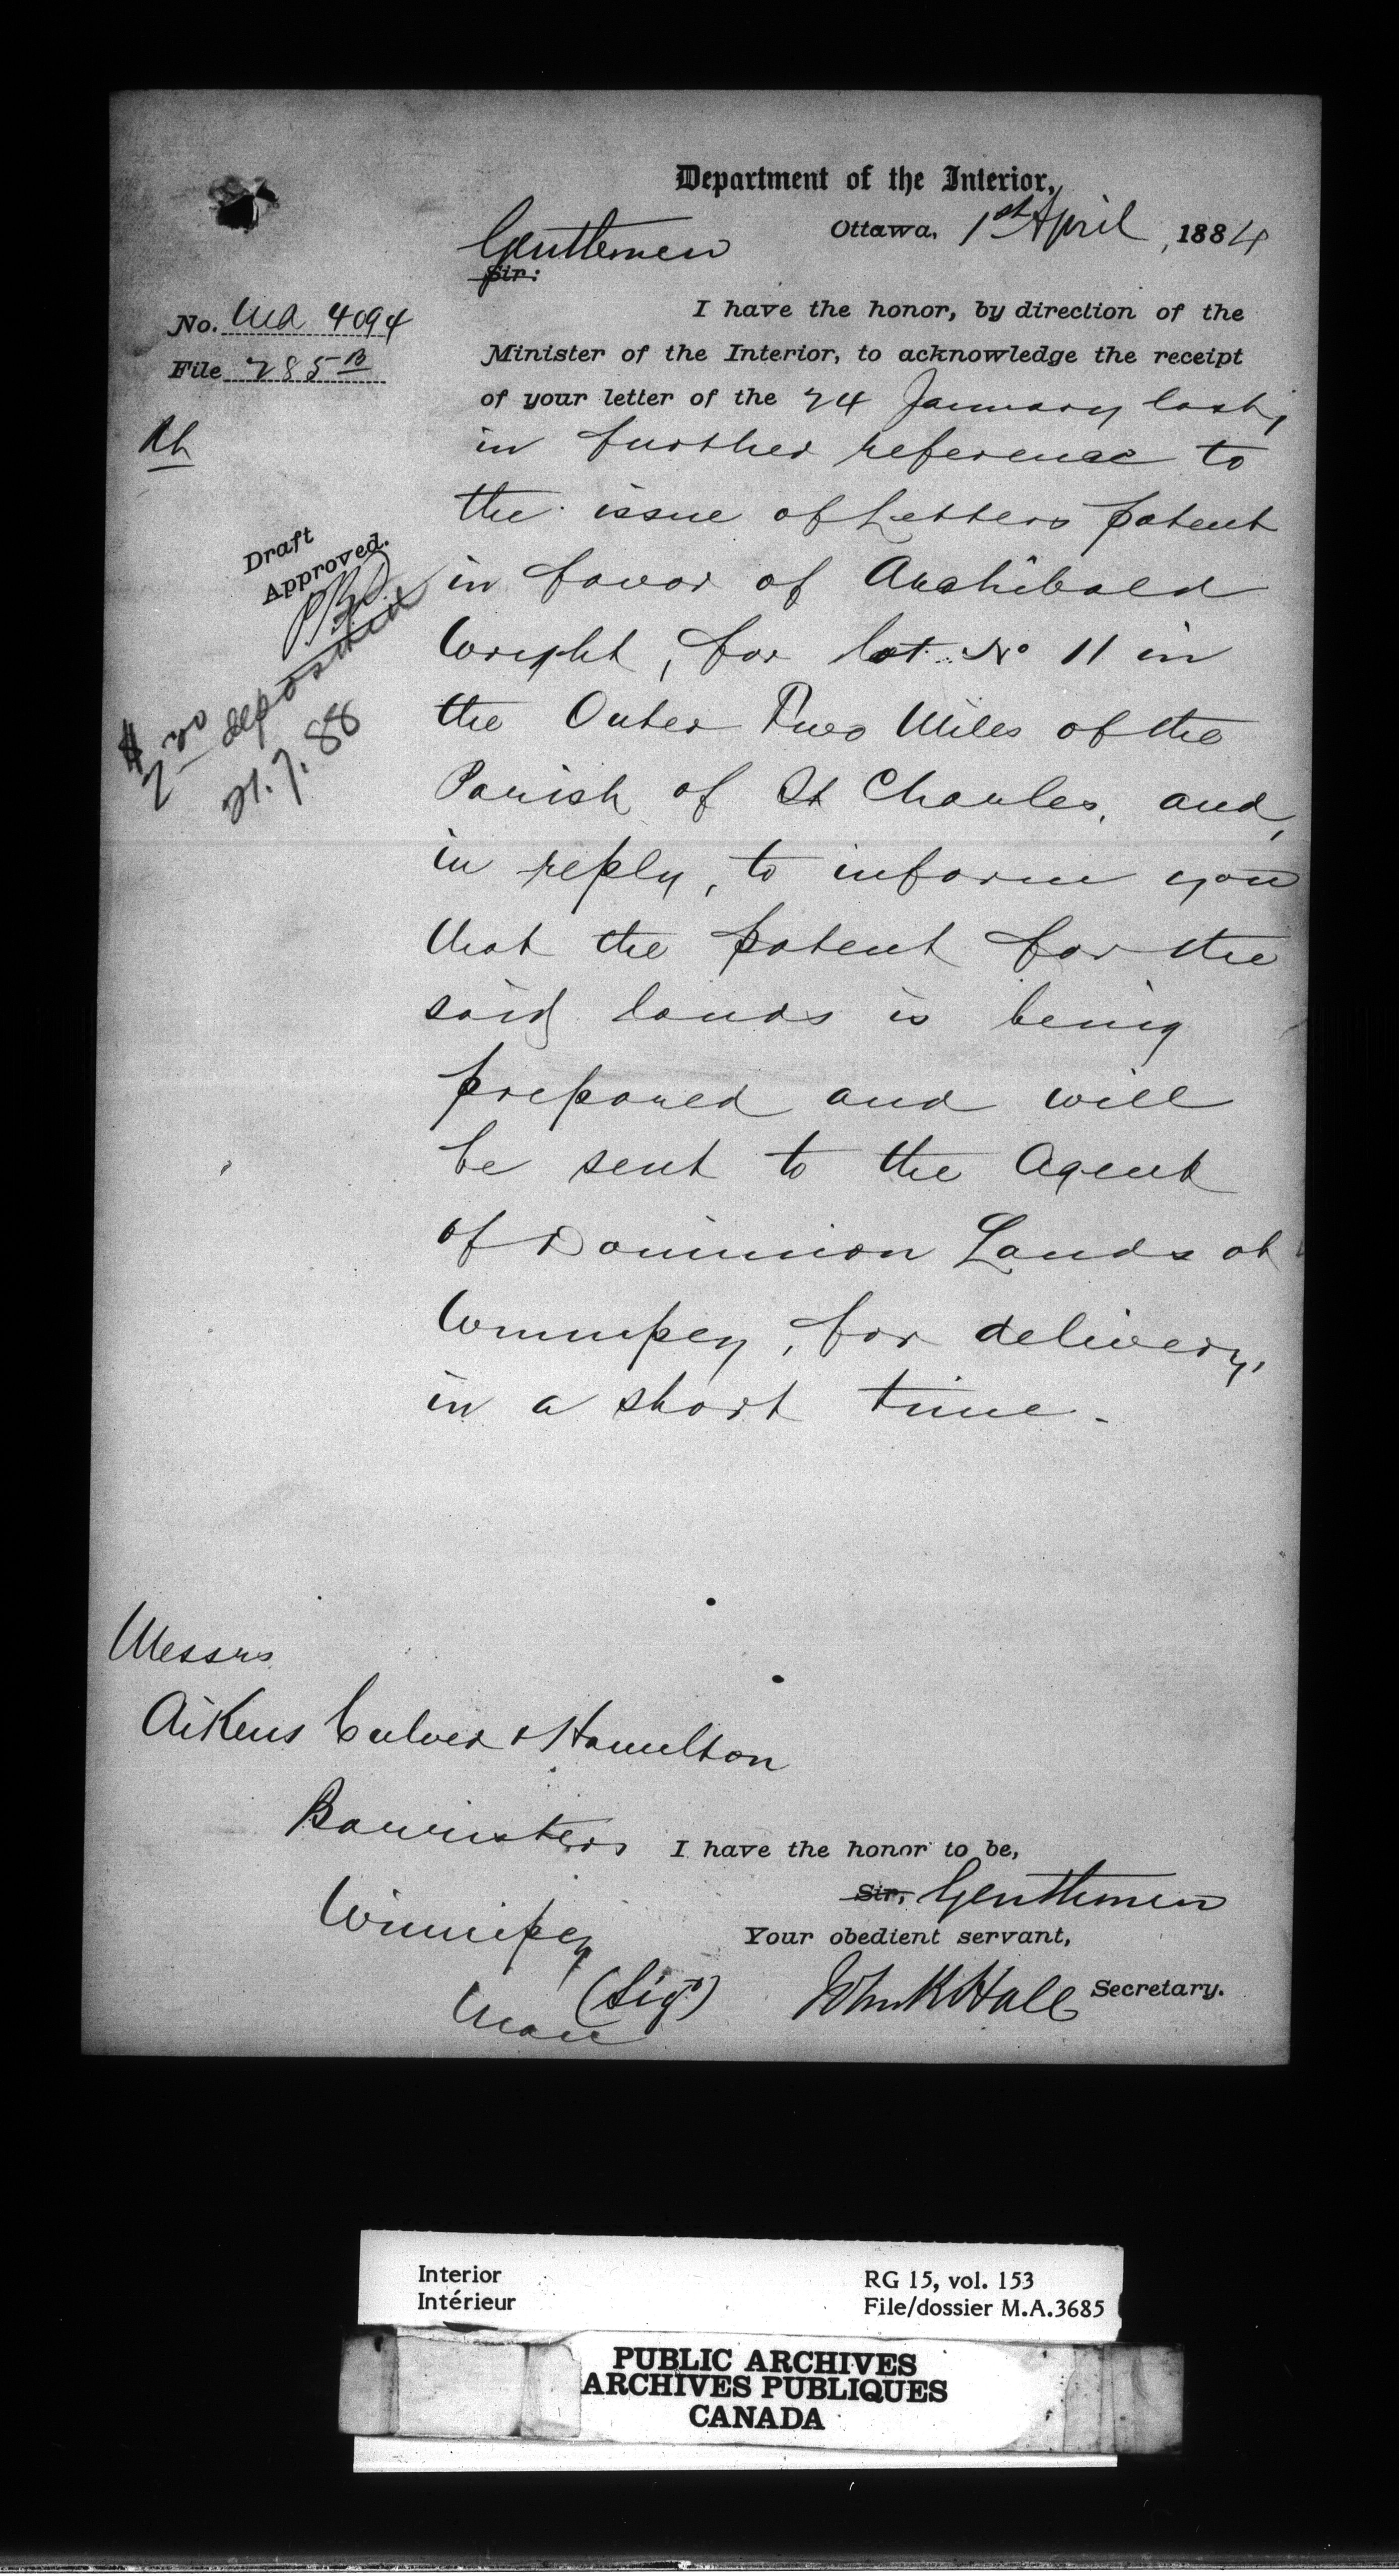 Department of the Interior,
Ottawa, 1st April, 1884
Gentlemen
Sir:
No. MA 4094
File 285 B
I have the honor, by direction of the
Minister of the Interior, to acknowledge the receipt
of your letter of the 24 January last,
in further reference to
the issue of Letters patent
in favor of Archibald
Wright, for lot No 11 in
the Outer Two Miles of the
Parish of St Charles, and,
in reply, to inform you
that the patent for the
said lands is being
prepared and will
be sent to the Agent
of Dominion Lands at
Winnipeg, for delivery,
in a short time.
Draft
Approved.
$ deposited
21.7.88
Messrs
Aikens Culver & Hamilton
Barristers
Winnipeg
Man
I have the honor to be,
Sir, Gentlemen
Your obedient servant,
(Sigd) John R Hall Secretary.
Interior
Intérieur
RG 15, vol. 153
File/dossier M.A.3685
PUBLIC ARCHIVES
ARCHIVES PUBLIQUES
CANADA